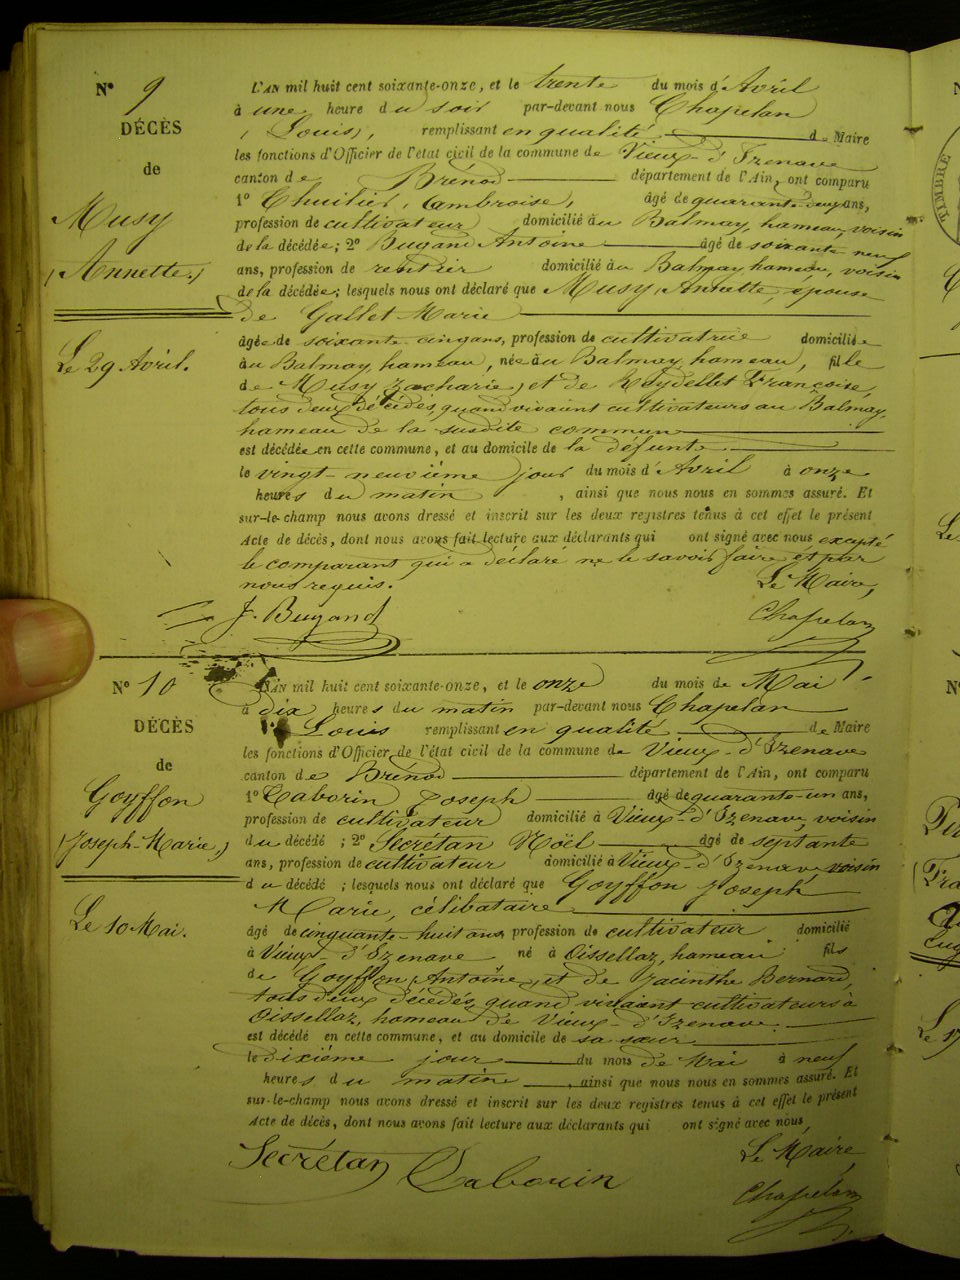 N° 9
DÉCÈS
de
Musy
(Annette.)
Le 29 Avril.
L'AN mil huit cent soixante-onze, et le trente du mois d'Avril
à une heure du soir par-devant nous Chapelan
(Louis), remplissant en qualité de Maire
les fonctions d'Officier de l'état civil de la commune de Vieux-d'Izenave
canton de Brénod département de l'Ain, ont comparu
1° Thuilier, Ambroise, âgé de quarante- ans,
profession de cultivateur domicilié au Balmay, hameau, voisin
de la décédée; 2° Bugand Antoine âgé de soixante neuf
ans, profession de rentier domicilié au Balmay hameau, voisin
de la décédée; lesquels nous ont déclaré que Musy, Annette, épouse
de Gallet Marie
âgée de soixante cinq ans, profession de cultivatrice domiciliée
au Balmay, hameau, née au Balmay, hameau, fille
de Musy Zacharie, et de Reydellet Françoise,
tous deux décédés, quand vivaient cultivateurs au Balmay,
hameau de la susdite commune
est décédée en cette commune, et au domicile de la défunte
le vingt-neuvième jour du mois d'Avril à onze
heures du matin, ainsi que nous nous en sommes assuré. Et
sur-le-champ nous avons dressé et inscrit sur les deux registres tenus à cet effet le présent
Acte de décès, dont nous avons fait lecture aux déclarants qui ont signé avec nous excepté
le comparant qui a déclaré ne le savoir faire et par
nous requis. Le Maire,
J. Bugand Chapelan
N° 10
DÉCÈS
de
Goyffon
(Joseph-Marie,)
Le 10 Mai.
L'AN mil huit cent soixante-onze, et le onze du mois de Mai
à dix heures du matin par-devant nous Chapelan
Louis remplissant en qualité de Maire
les fonctions d'Officier de l'état civil de la commune de Vieux-d'Izenave
canton de Brénod département de l'Ain, ont comparu
1° Taborin Joseph âgé de quarante-un ans,
profession de cultivateur domicilié à Vieux-d'Izenave, voisin
du décédé ; 2° Secrétan Noël âgé de septante
ans, profession de cultivateur domicilié à Vieux-d'Izenave voisin
du décédé ; lesquels nous ont déclaré que Goyffon Joseph
Marie, célibataire
âgé de cinquante-huit ans profession de cultivateur domicilié
à Vieux-d'Izenave né à Oissellaz, hameau fils
de Goyffon, Antoine, et de Jacinthe Bernard,
tous deux décédés, quand vivaient cultivateurs à
Oissellaz, hameau de Vieux-d'Izenave
est décédé en cette commune, et au domicile de sa sœur
le dixième jour du mois de Mai à neuf
heures du matin, ainsi que nous nous en sommes assuré. Et
sur-le-champ nous avons dressé et inscrit sur les deux registres tenus à cet effet le présent
Acte de décès, dont nous avons fait lecture aux déclarants qui ont signé avec nous,
Le Maire,
Secrétan Tabouin Chapelan
TIMBRE